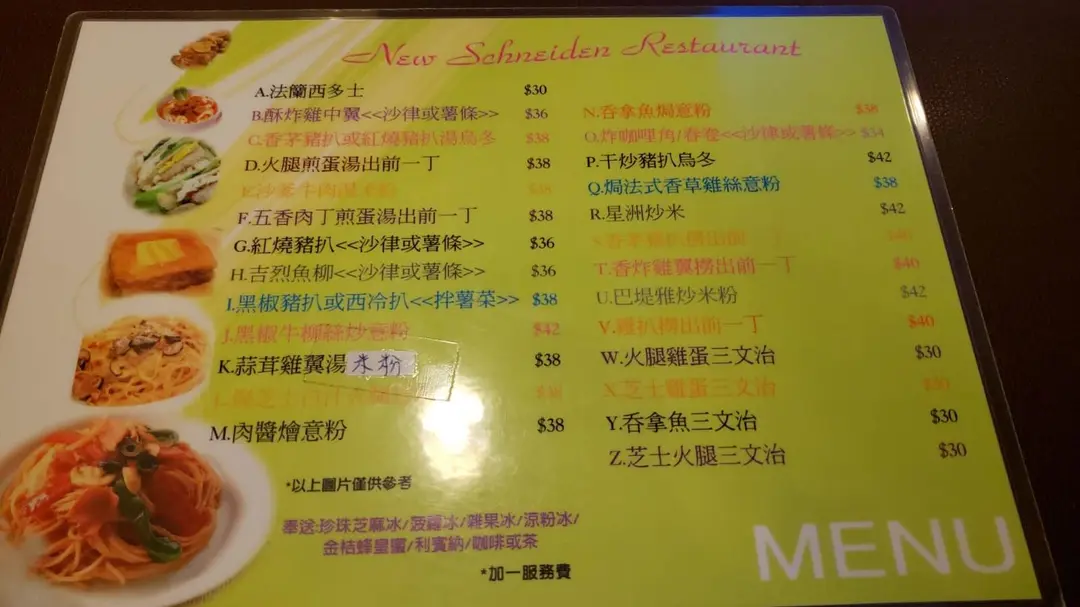 New Schneiden Restaurant
A.法蘭西多士 $30
B.酥炸雞中翼<<沙律或薯條>> $36
C.香茅豬扒或紅燒豬扒湯烏冬 $38
D.火腿煎蛋湯出前一丁 $38
E.沙爹牛肉湯 $38
F.五香肉丁煎蛋湯出前一丁 $38
G.紅燒豬扒<<沙律或薯條>> $36
H.吉烈魚柳<<沙律或薯條>> $36
I.黑椒豬扒或西冷扒<<拌薯菜>> $38
J.黑椒牛柳絲炒意粉 $42
K.蒜茸雞翼湯米粉 $38
L.焗芝士白汁火腿 $38
M.肉醬燴意粉 $38
N.吞拿魚焗意粉 $38
O.炸咖哩角/春卷<<沙律或薯條>> $34
P.干炒豬扒烏冬 $42
Q.焗法式香草雞絲意粉 $38
R.星洲炒米 $42
S.香茅豬扒撈出前一丁 $40
T.香炸雞翼撈出前一丁 $40
U.巴堤雅炒米粉 $42
V.雞扒撈出前一丁 $40
W.火腿雞蛋三文治 $30
X.芝士雞蛋三文治 $30
Y.吞拿魚三文治 $30
Z.芝士火腿三文治 $30
*以上圖片僅供參考
奉送:珍珠芝麻冰/菠蘿冰/雜果冰/涼粉冰/
金桔蜂皇蜜/利賓納/咖啡或茶
*加一服務費
MENU